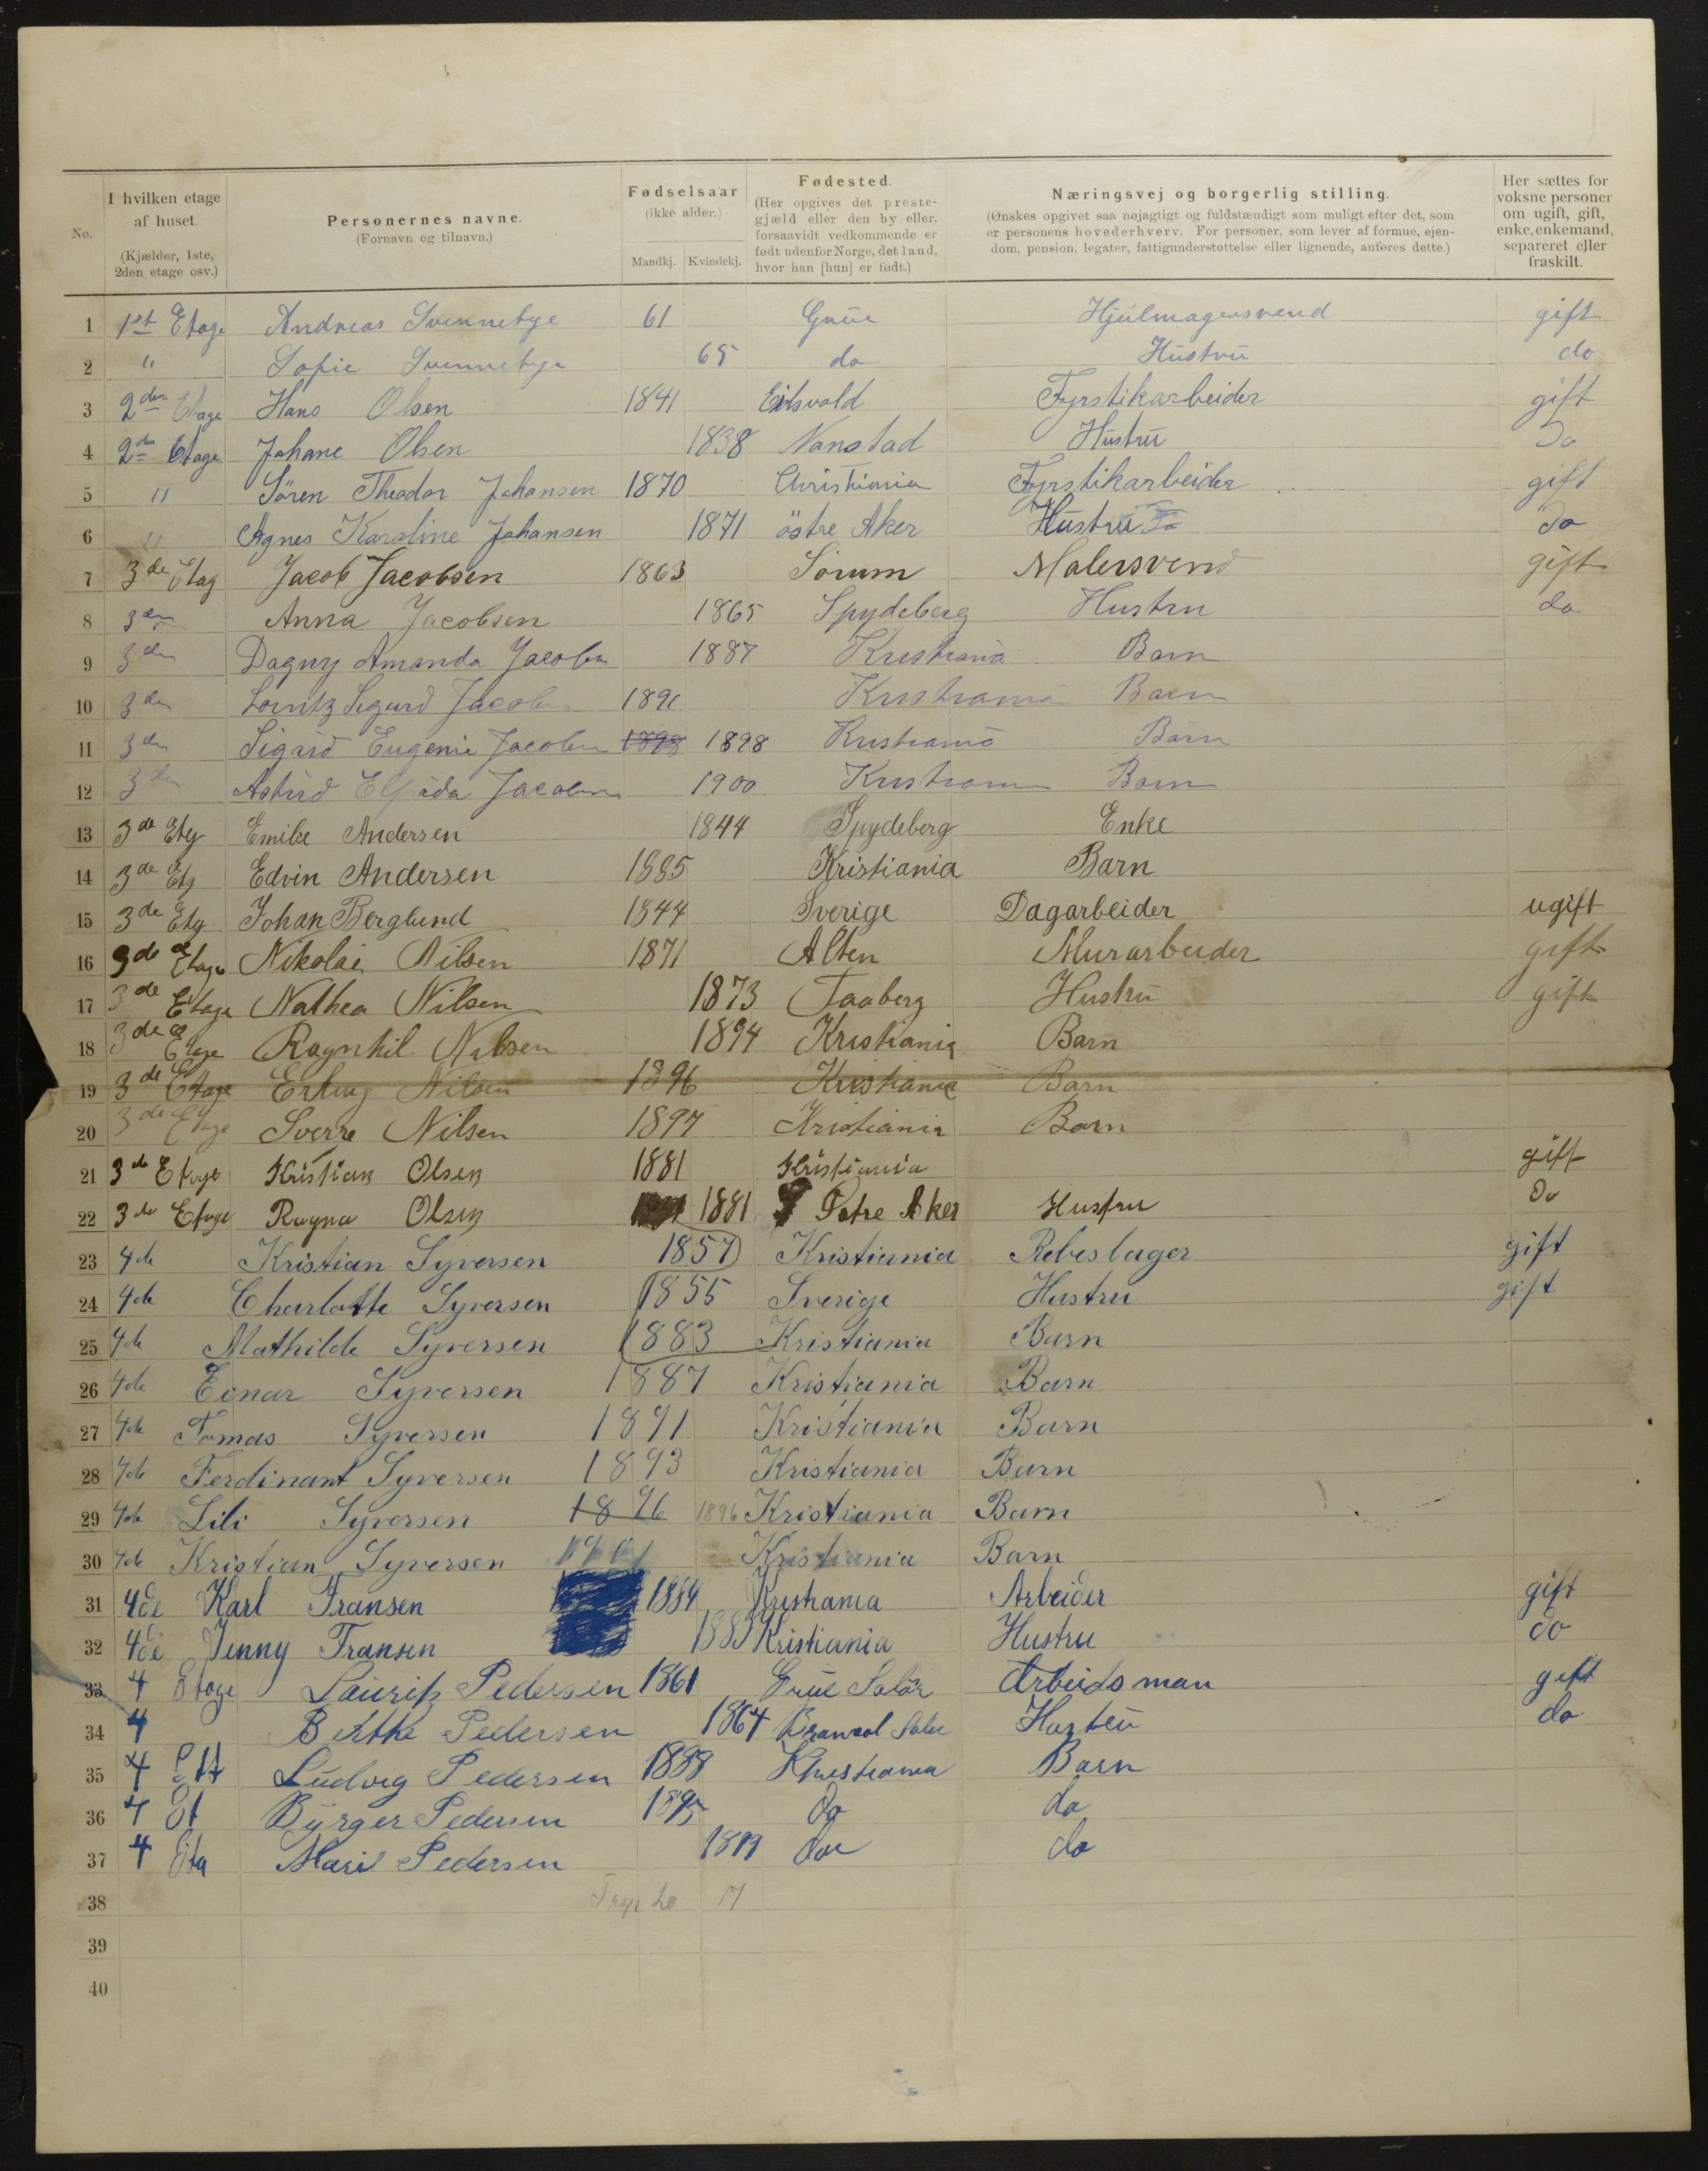 No.
I hvilken etage af huset. (Kjælder, 1ste, 2den etage osv.)
Personernes navne. (Fornavn og tilnavn.)
Fødselsaar (ikke alder.) Mandkj. Kvindekj.
Fødested. (Her opgives det prestegjæld eller den by eller, forsaavidt vedkommende er født udenfor Norge, det land, hvor han [hun] er født.)
Næringsvej og borgerlig stilling. (Ønskes opgivet saa nøjagtigt og fuldstændigt som muligt efter det, som er personens hovederhverv. For personer, som lever af formue, ejendom, pension, legater, fattigunderstøttelse eller lignende, anføres dette.)
Her sættes for voksne personer om ugift, gift, enke, enkemand, separeret eller fraskilt.
1 1st Etage Andreas Svennebye 61 Grue Hjulmagersvend gift
2 " Sofie Svennebye 65 do Hustru do
3 2den Etage Hans Olsen 1841 Eidsvold Fyrstikarbeider gift
4 2den Etage Johane Olsen 1838 Nanstad Hustru Do
5 " Sören Theodor Johansen 1870 Christiania Fyrstikarbeider gift
6 " Agnes Karoline Johansen 1871 östre Aker Hustru Do
7 3den Etag Jacob Jacobsen 1863 Sörum Malersvend gift
8 3den Anna Jacobsen 1865 Spydeberg Hustru do
9 3den Dagny Amanda Jacobsen 1887 Kristiania Barn
10 3den Lorntz Sigurd Jacobsen 1891 Kristiania Barn
11 3den Sigrid Eugenie Jacobsen 1898 1898 Kristiania Barn
12 3den Astrid Jacobsen 1900 Kristiania Barn
13 3de Etg Emilie Andersen 1844 Spydeberg Enke
14 3de Etg Edvin Andersen 1885 Kristiania Barn
15 3de Etg Johan Berglund 1844 Sverige Dagarbeider ugift
16 3de Etage Nikolai Nilsen 1871 Alten Murarbeider gift
17 3de Etage Nathea Nilsen 1873 Faaberg Hustru gift
18 3de Etage Ragnhil Nilsen 1894 Kristiania Barn
19 3de Etage Erling Nilsen 1896 Kristiania Barn
20 3de Etage Sverre Nilsen 1897 Kristiania Barn
21 3de Etage Kristian Olsen 1881 Kristiania gift
22 3de Etage Ragna Olsen 1881 Østre Aker Hustru Do
23 4de Kristian Syversen 1857 Kristiania Rebeslager gift
24 4de Charlotte Syversen 1855 Sverige Hustru gift
25 4de Mathilde Syversen 1883 Kristiania Barn
26 4de Einar Syversen 1887 Kristiania Barn
27 4de Tomas Syversen 1891 Kristiania Barn
28 4de Ferdinant Syversen 1893 Kristiania Barn
29 4de Lili Syversen 1896 1896 Kristiania Barn
30 4de Kristian Syversen 1901 Kristiania Barn
31 4de Karl Fransen 1884 Kristiania Arbeider gift
32 4de Jenny Fransen Kristiania Hustru do
33 4 Etage Lauritz Pedersen 1861 Grue Solör Arbeidsman gift
34 4 Berthe Pedersen 1864 Hustru do
35 4 Ludvig Pedersen 1888 Khristiania Barn
36 4 Et Byrger Pedersen 1895 do do
37 4 Eta Mari Pedersen 1899 do do
38 17
39
40